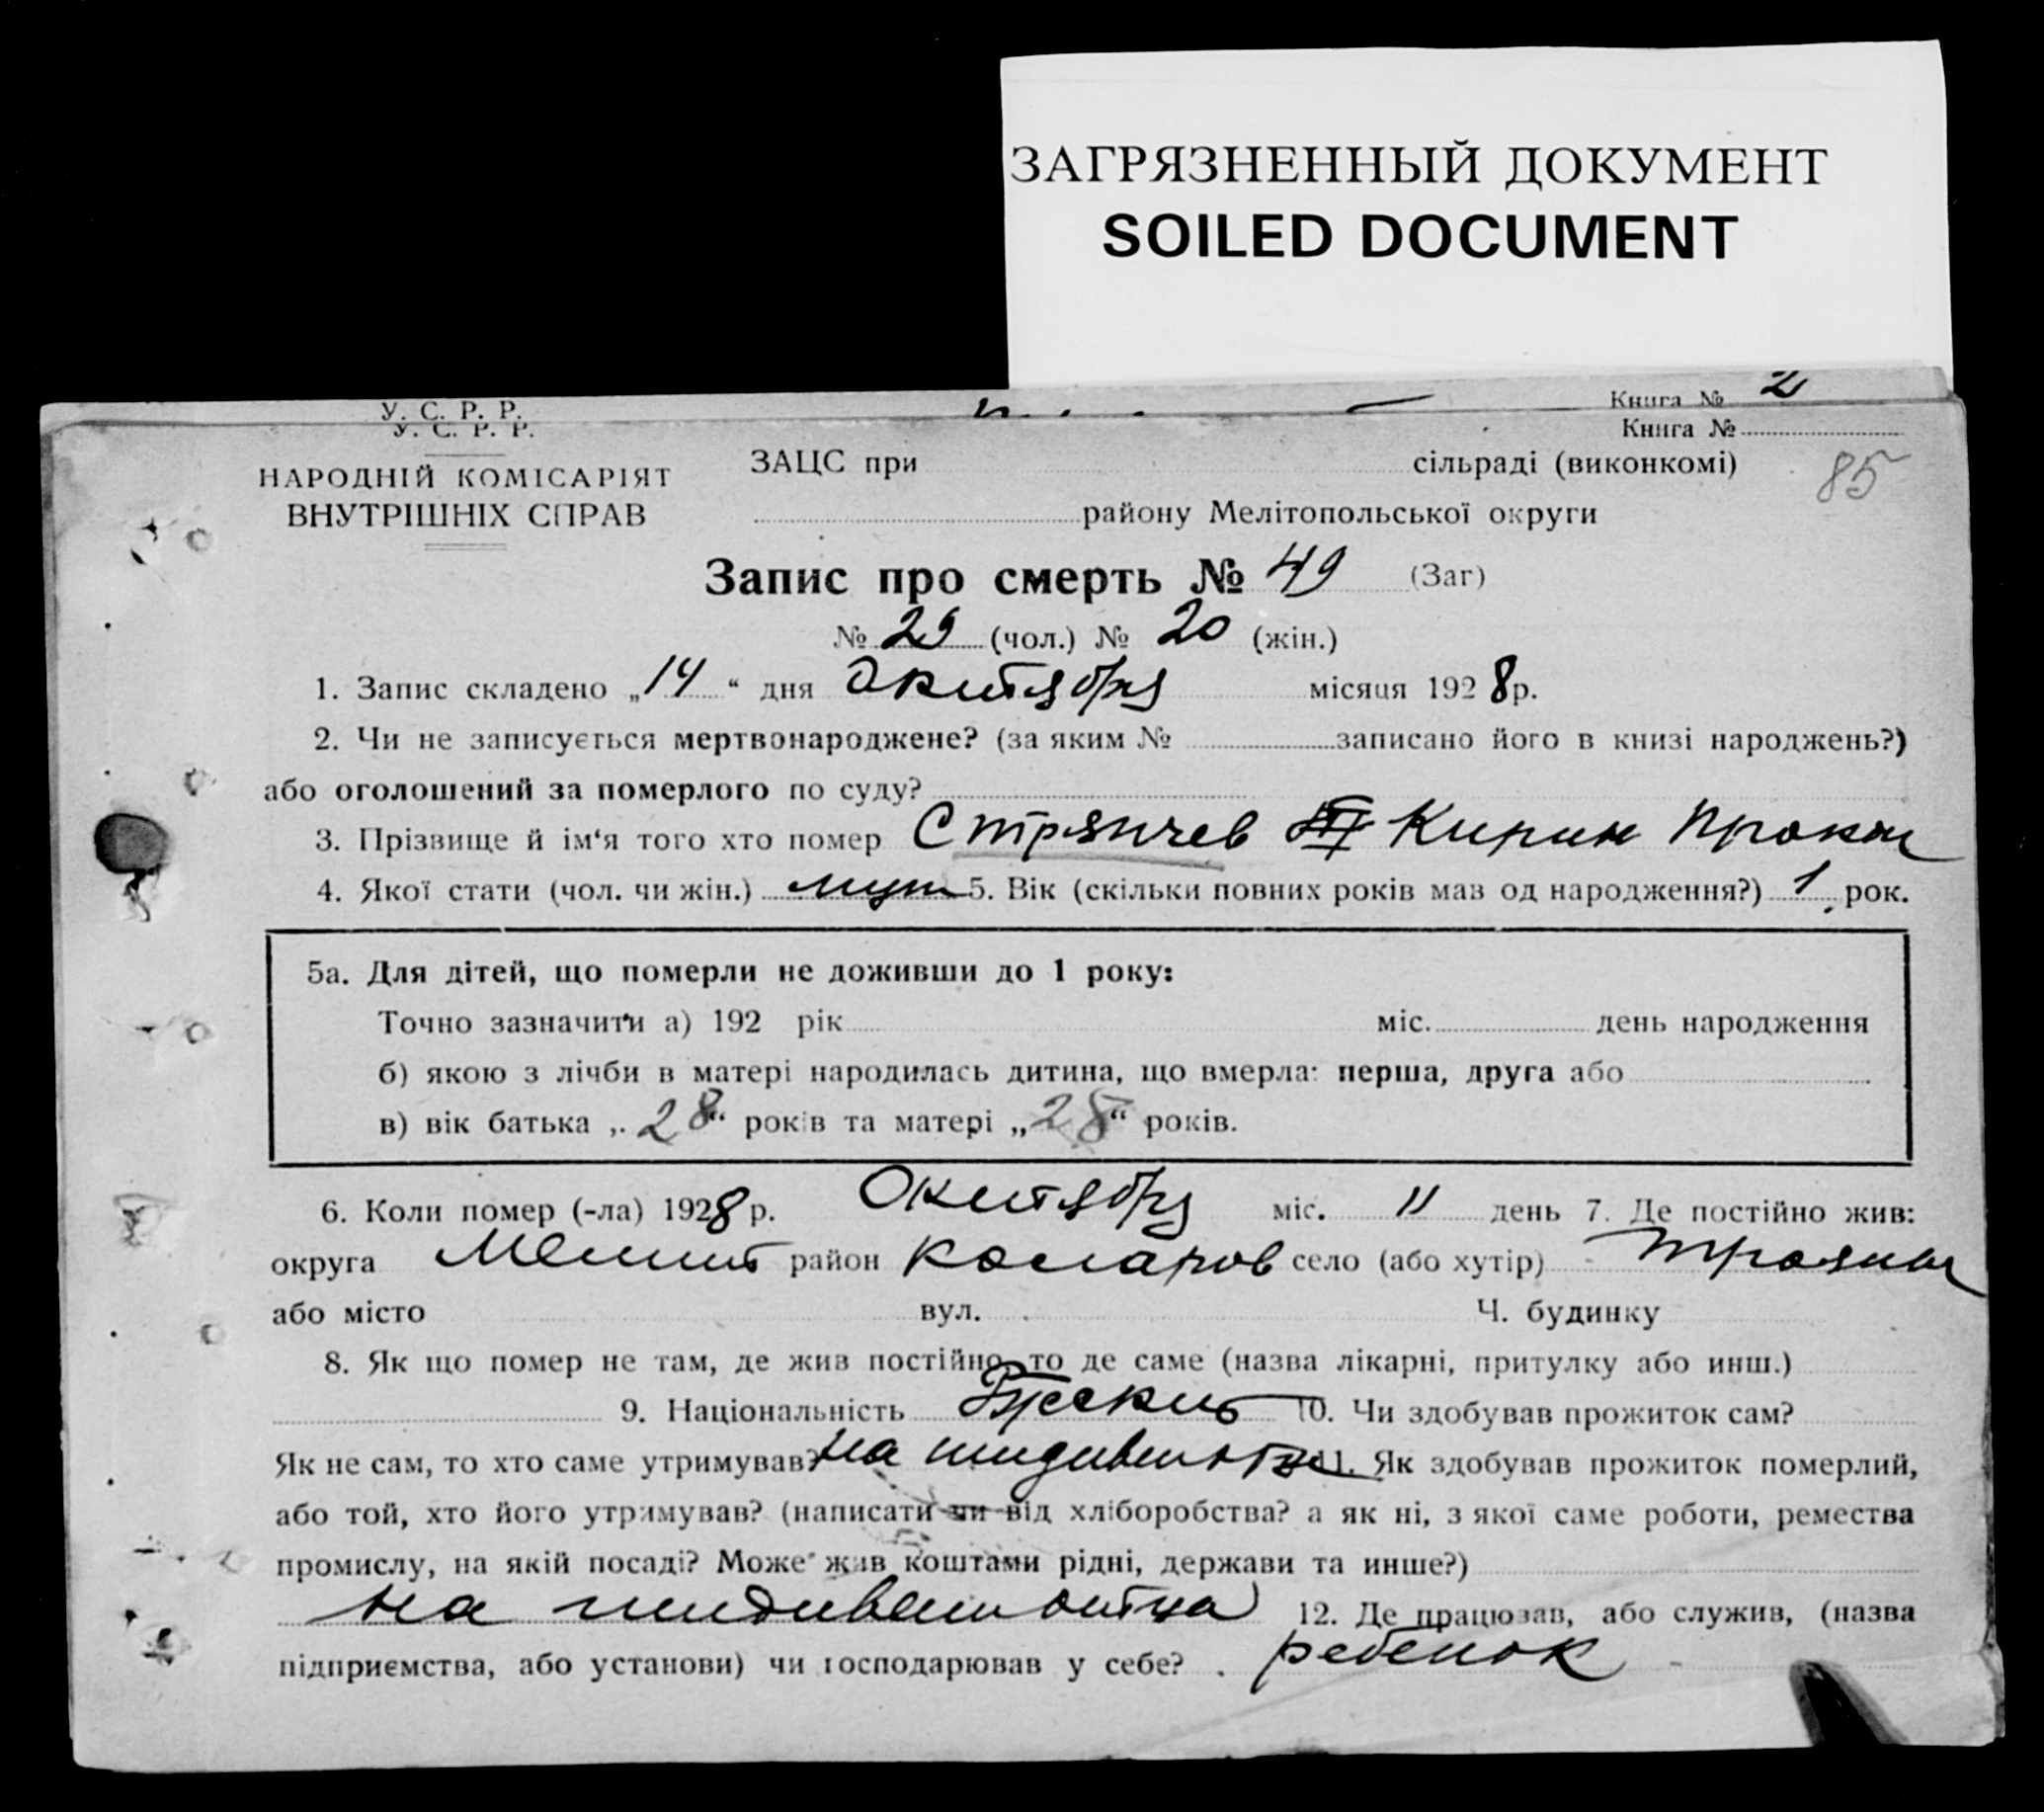 ЗАГРЯЗНЕННЫЙ ДОКУМЕНТ
SOILED DOCUMENT
У. С. Р. Р. Книга № 2
У. С. Р. Р. Книга №
НАРОДНІЙ КОМІСАРІЯТ
ВНУТРІШНІХ СПРАВ
ЗАЦС при сільраді (виконкомі) 85
району Мелітопольської округи
Запис про смерть № 49 (Заг)
№ 29 (чол.) № 20 (жін.)
1. Запис складено „14“ дня Октября місяця 1928 р.
2. Чи не записується мертвонароджене? (за яким № записано його в книзі народжень?)
або оголошений за померлого по суду?
3. Прізвище й ім‘я того хто помер Стрянчев Кирил Прок
4. Якої стати (чол. чи жін.) муж 5. Вік (скільки повних років мав од народження?) 1 рок.
5а. Для дітей, що померли не доживши до 1 року:
Точно зазначити а) 192 рік міс. день народження
б) якою з лічби в матері народилась дитина, що вмерла: перша, друга або
в) вік батька „28“ років та матері „28“ років.
6. Коли помер (-ла) 1928 р. Октября міс. 11 день 7. Де постійно жив:
округа Мелит район Коларов село (або хутір) Троян
або місто вул. Ч. будинку
8. Як що помер не там, де жив постійно, то де саме (назва лікарні, притулку або инш.)
9. Національність 10. Чи здобував прожиток сам?
Як не сам, то хто саме утримував? на иждивен отца 11. Як здобував прожиток померлий,
або той, хто його утримував? (написати чи від хліборобства? а як ні, з якої саме роботи, ремества
промислу, на якій посаді? Може жив коштами рідні, держави та инше?)
на иждивени отца 12. Де працював, або служив, (назва
підприємства, або установи) чи господарював у себе? ребенок